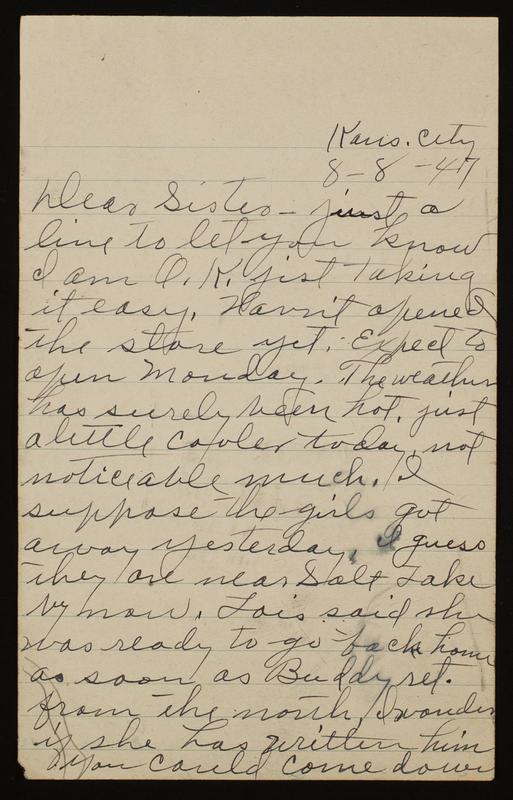 Kans. City
8-8-47
Dear Sister - just a
line to let you know
I am O.K. jist taking
it easy. Havn't opened
the store yet. Expect to
open Monday. The weather
has surely been hot, just
a little cooler today, not
noticeable much. I
suppose the girls got
away yesterday, I guess
they are near Salt Lake
by now. Lois said she
was ready to go back home
as soon as Buddy ret.
from the north, I wonder
if she has written him
you could come down